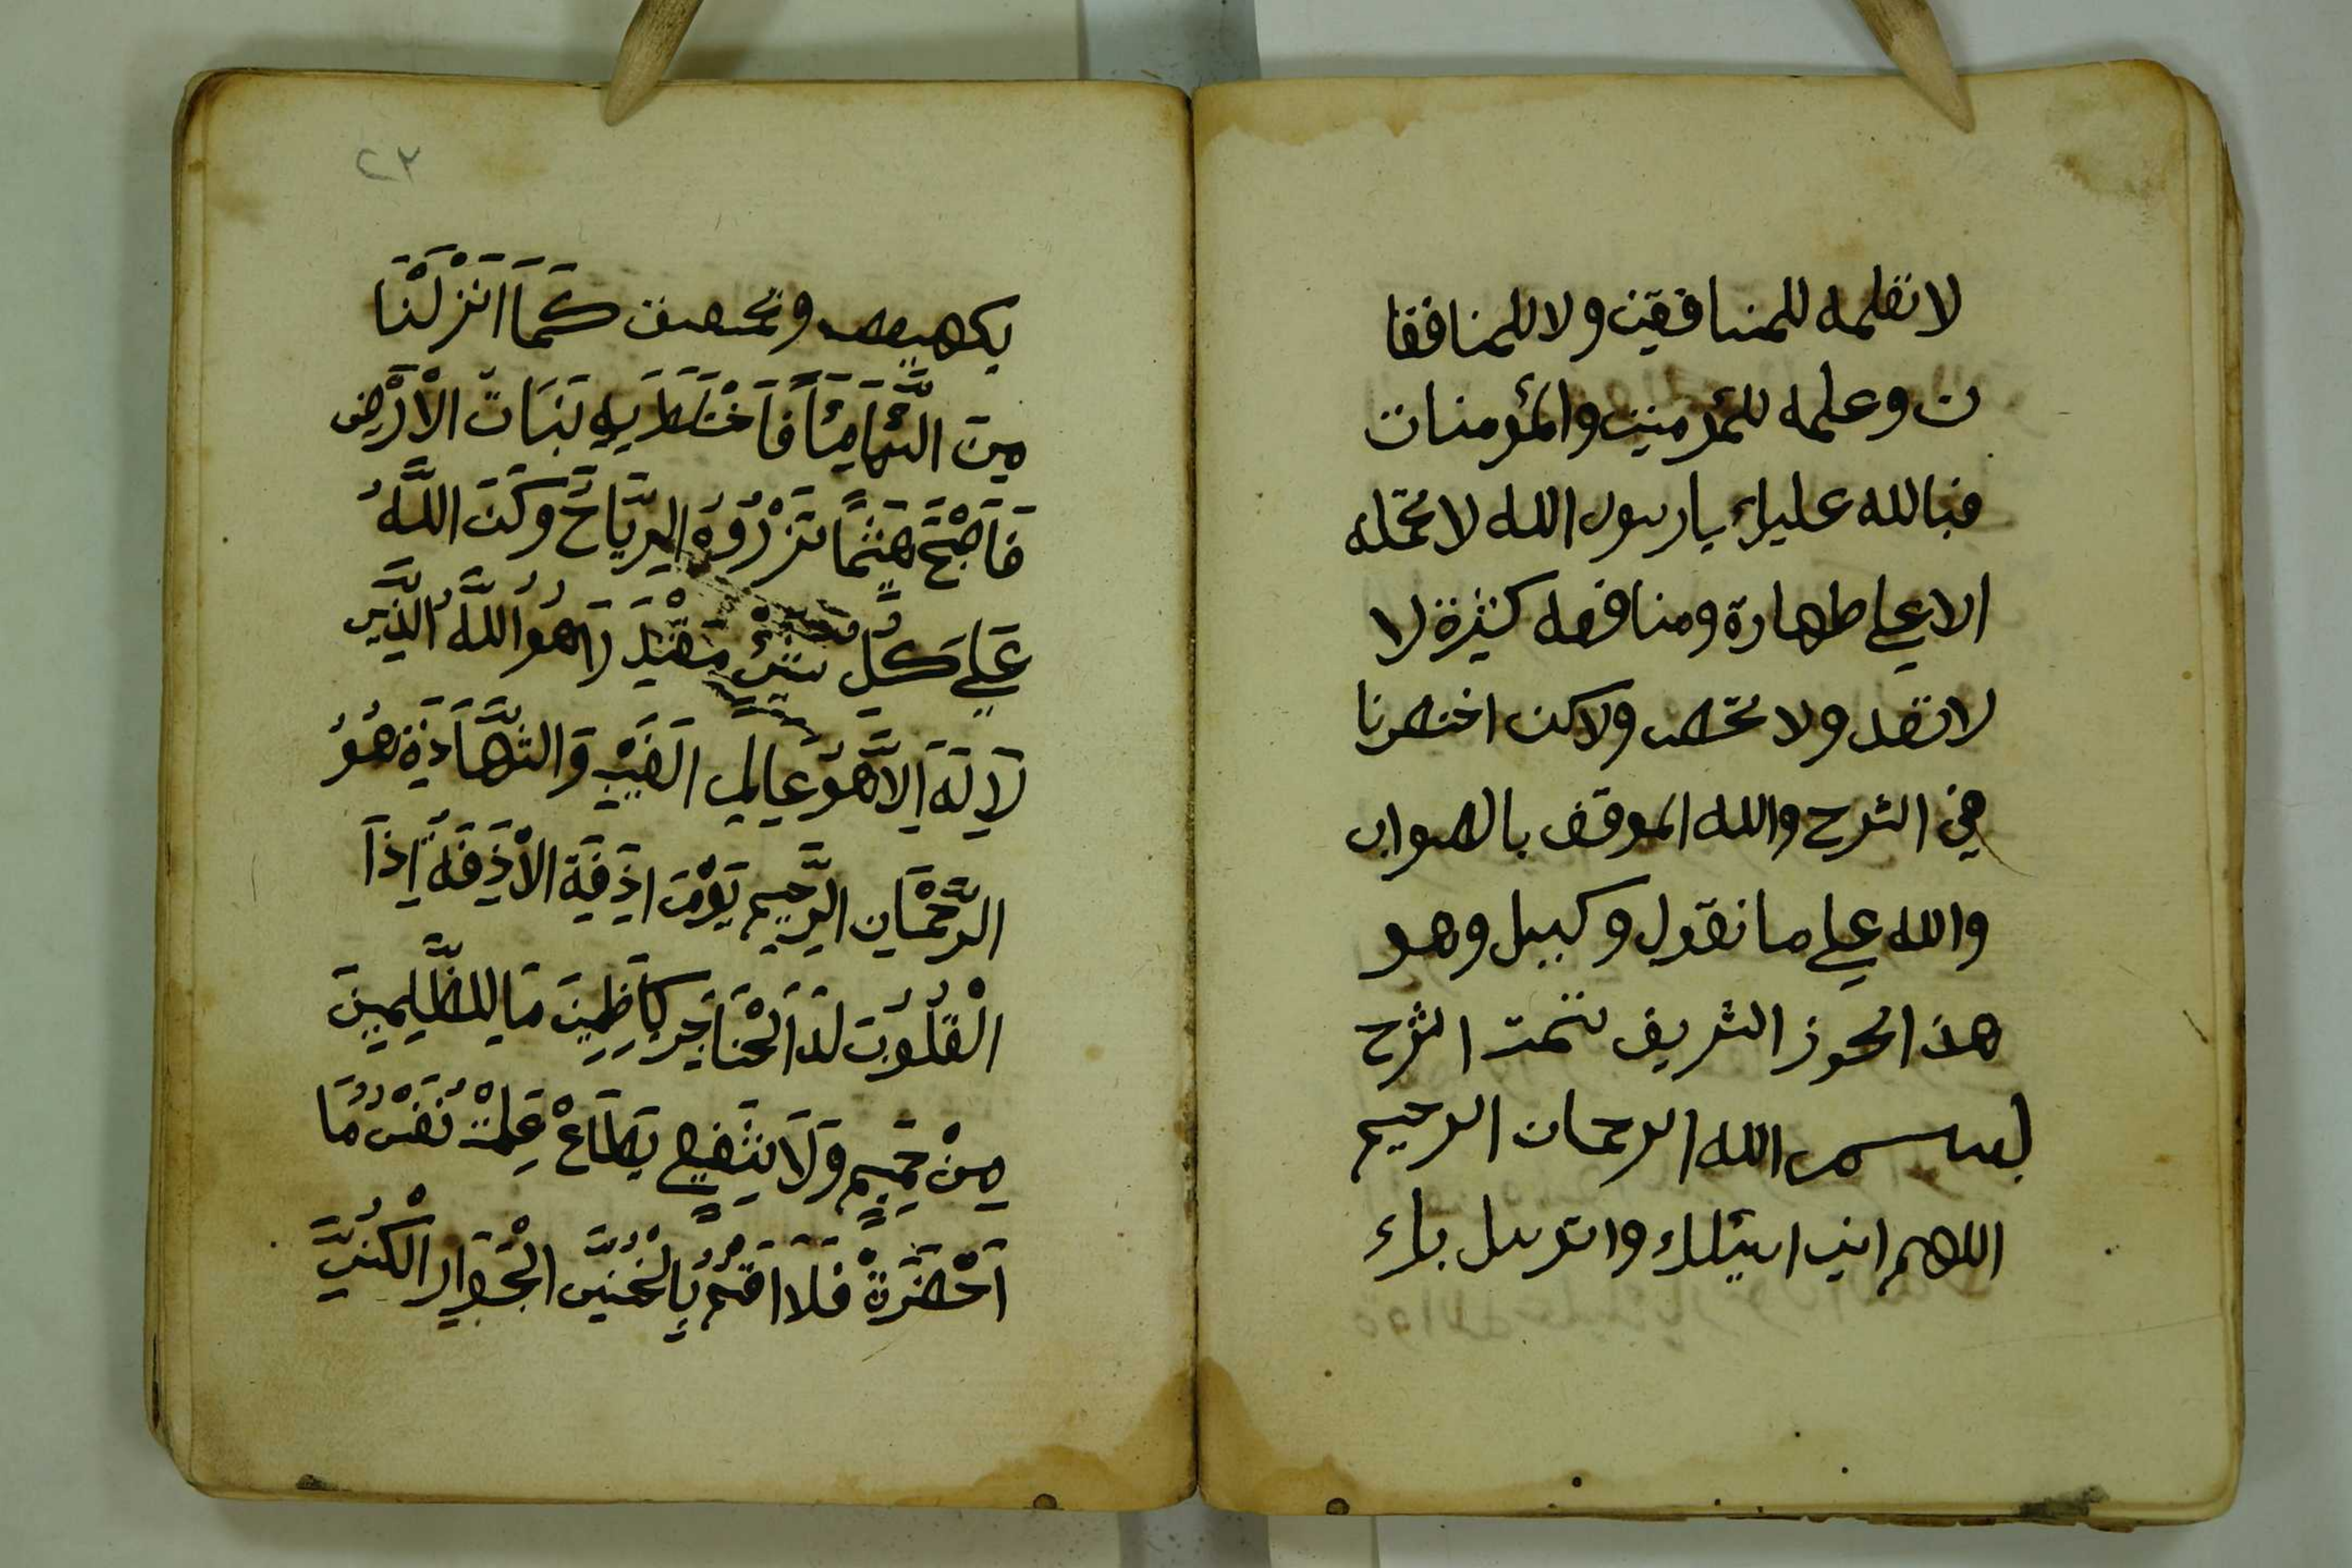 لا تعلمه للمنافقين ولا للمنافقا
ت وعلمه للمؤمنين والمؤمنات
فبالله عليك يا رسول الله لا تحمله
الا علي طهارة ومنافعه كثيرة لا
لا تعد ولا تحص ولاكن اختصرنا
في الشرح والله الموفق بالصواب
والله علي ما نقول وكيل وهو
هذ الحوز الشريف تتمت الشرح
بسم الله الرحمان الرحيم
اللهم اني اسئلك واتوسل بك
٢٣
بكهيعص وحمعسق كَمَا اَنْزَلْنَا
مِنَ السَّمَا مِئَاً فَاخْتَلَطَ بِهِ نَبَاتَ الْاَرْضِ
فَاَصْبَحَ هَشِيمًا تَزْرُوهُ الرِّيَّاحُ وَكَنَ اللَّهُ
عَلِي كُلِّ شَيْئٍ مُقْتَدِرَا هُوَ اللَّهُ الَّذِي
لَا اِلَهَ اِلَّا هُوَ عَالِمِ الْغَيْبِ وَالشَّهَادَةِ هُوَ
الرَّحْمَانِ الرَّحِيمِ يَوْمَ اذِفَةِ الْاَذِفَةُ اِذَا
الْقُلُوبَ لَدَ الْحَنَاجِرِ كَاظِمِينَ مَا لِلظَّلِمِينَ
مِنْ حَمِيمٍ وَلَا شَفِيعٍ يَطَاعْ عَلِمَتْ نَفْسٌ مَا
اَحْضَرَةْ فَلَا اقْسِمُ بِالْخُنَّسِ الْجَوَارِ الْكُنَّسِ